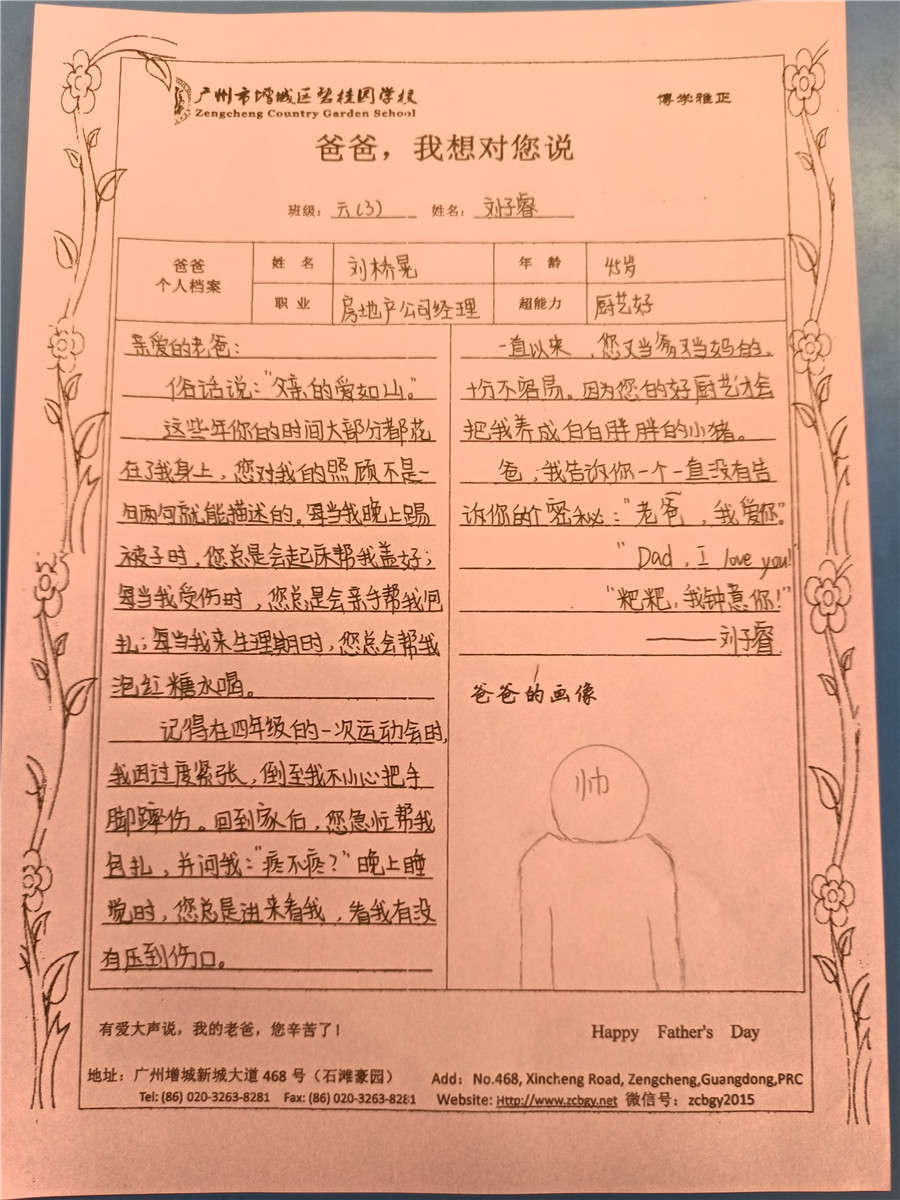 广州市增城区碧桂园学校
Zengcheng Country Garden School
博学雅正
爸爸，我想对您说
班级：六(3) 姓名：刘子睿
爸爸
个人档案
姓 名 刘桥晃 年 龄 45岁
职 业 房地产公司经理 超能力 厨艺好
亲爱的老爸：
俗话说："父亲的爱如山。"
这些年你的时间大部分都花
在了我身上，您对我的照顾不是一
句两句就能描述的。每当我晚上踢
被子时，您总是会起床帮我盖好；
每当我受伤时，您总是会亲手帮我包
扎；每当我来生理期时，您总会帮我
泡红糖水喝。
记得在四年级的一次运动会时，
我因过度紧张，倒至我不小心把手
脚蹿伤。回到家后，您急忙帮我
包扎，并问我："疼不疼？"晚上睡
觉时，您总是进来看我，看我有没
有压到伤口。
一直以来，您又当爸又当妈的，
十分不容易。因为您的好厨艺才会
把我养成白白胖胖的小猪。
爸，我告诉你一个一直没有告
诉你的个密秘："老爸，我爱你"。
"Dad，I love you!"
"粑粑，我钟意你！"
——刘子睿
爸爸的画像
帅
有爱大声说，我的老爸，您辛苦了！
Happy Father's Day
地址：广州增城新城大道 468 号（石滩豪园）
Add：No.468, Xincheng Road, Zengcheng,Guangdong,PRC
Tel: (86) 020-3263-8281 Fax: (86) 020-3263-8281 Website: Http://www.zcbgy.net 微信号：zcbgy2015